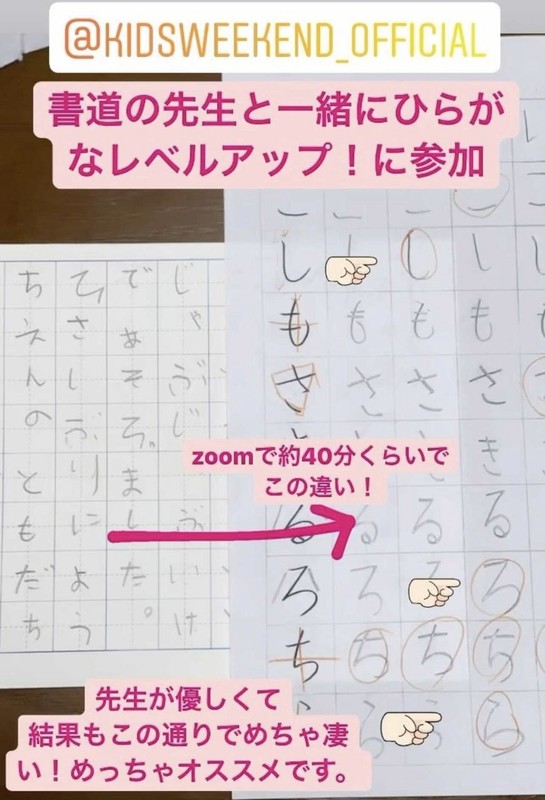 @KIDSWEEKEND_OFFICIAL
書道の先生と一緒にひらが
なレベルアップ！に参加
じゃぶじ ぶいけ
であそびました。
ひさしぶりによう
ちえんのともだち
し し し
も も も も
さ さ さ さ
き
zoomで約40分くらいで
この違い！
る る る る
ろ ろ ろ
ち ち ち ち
先生が優しくて
結果もこの通りでめちゃ凄
い！めっちゃオススメです。